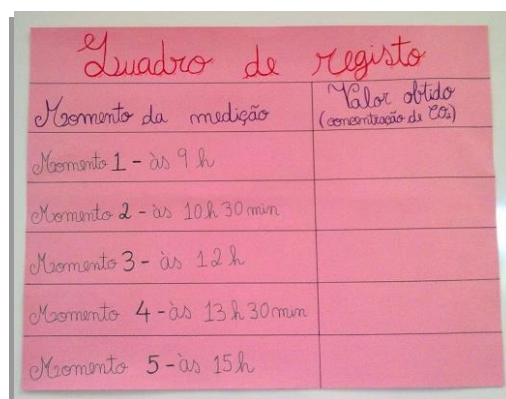 Quadro de registo
Momento da medição
Valor obtido
(concentração de CO₂)
Momento 1 - às 9 h
Momento 2 - às 10 h 30 min
Momento 3 - às 12 h
Momento 4 - às 13 h 30 min
Momento 5 - às 15 h